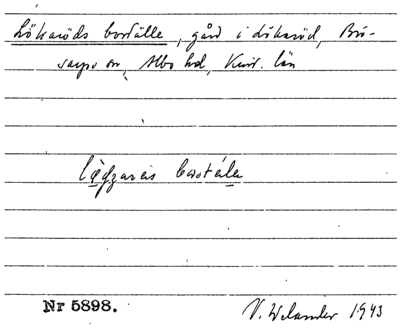 Lökaröds boställe, gård i Lökaröd, Brö-
sarps sn, Albo hd, Krist. län
bostäle
Nr 5898.
V. Welander 1943